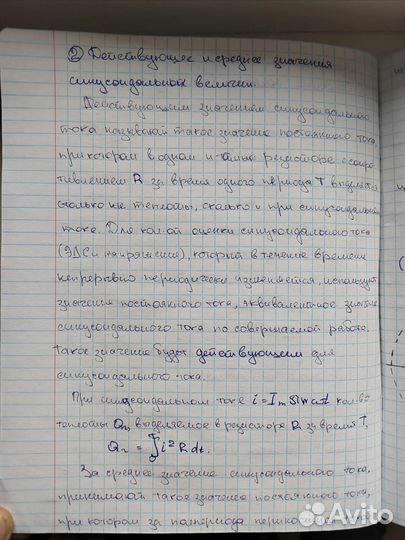 ② Действующее и среднее значения
синусоидальных величин.
Действующим значением синусоидального
тока называют такое значение постоянного тока
при котором в одном и том же резисторе с сопро
тивлением R за время одного периода T выделяется
столько же теплоты, сколько и при синусоидальном
токе. Для колич оценки синусоидального тока
(ЭДС и напряжения), который в течение времени
непрерывно периодически изменяется, используют
значение постоянного тока, эквивалентное значению
синусоидального тока по совершаемой работе,
такое значение будет действующим для
синусоидального тока.
При синусоидальном токе i = Im sin ωt кол-во
теплоты выделяемое в резисторе R за время T,
= ∫ i² R dt.
За среднее значение синусоидального тока,
принимают такое значение постоянного тока,
при котором за полпериода
Avito